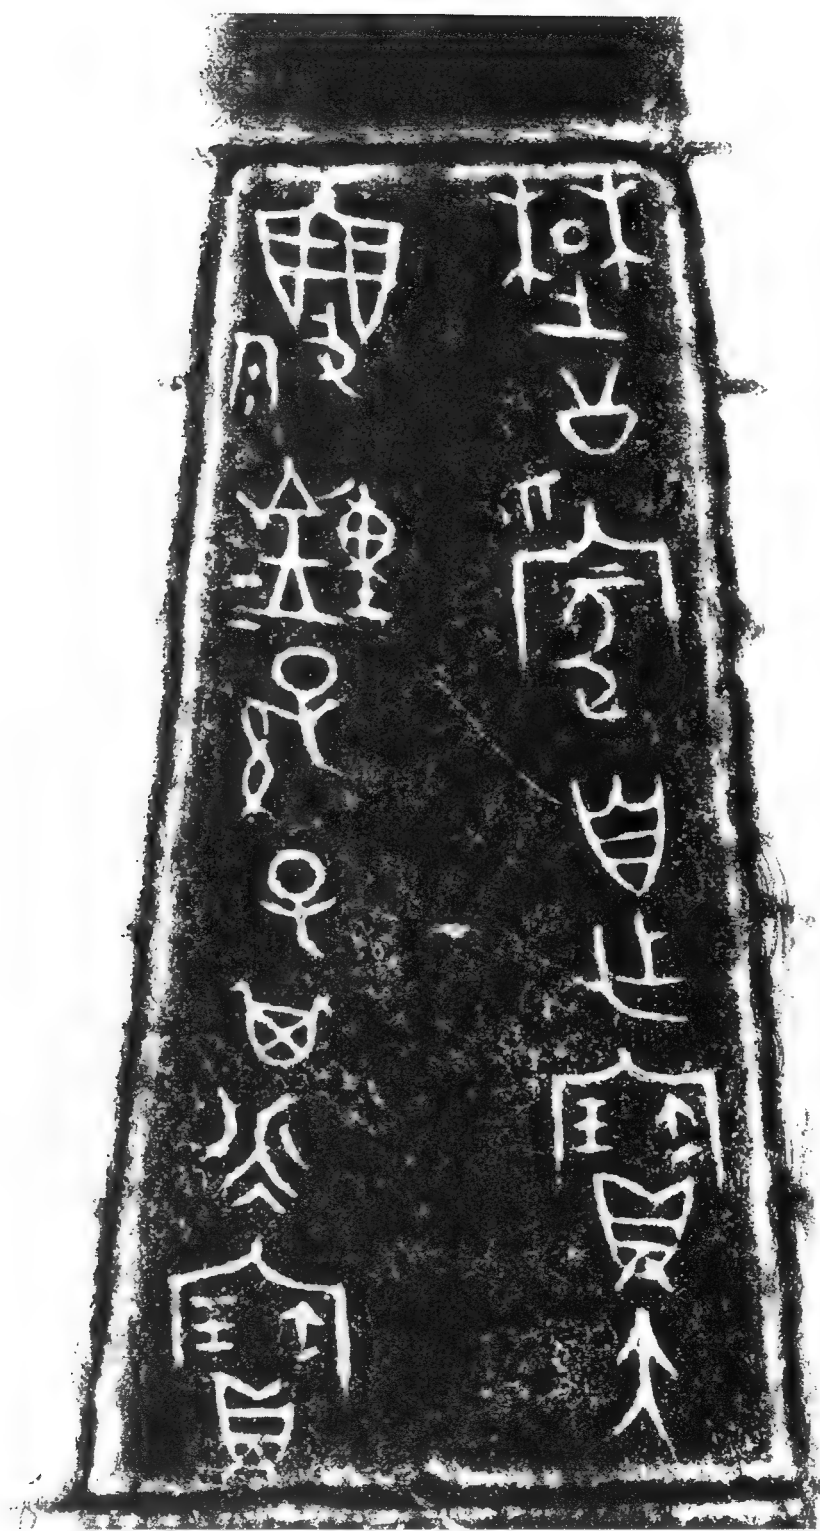 楚公豪自乍寶大
林鐘孫子其永寶